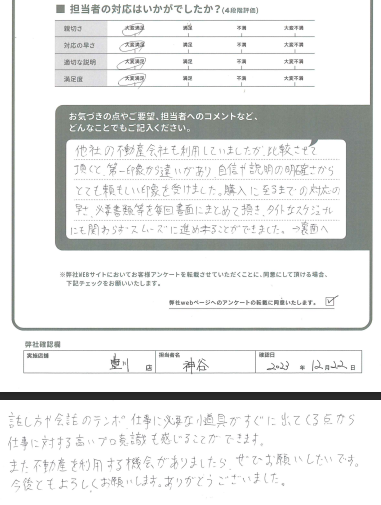 ■ 担当者の対応はいかがでしたか?(4段階評価)
親切さ 大変満足 満足 不満 大変不満
対応の早さ 大変満足 満足 不満 大変不満
適切な説明 大変満足 満足 不満 大変不満
満足度 大変満足 満足 不満 大変不満
お気づきの点やご要望、担当者へのコメントなど、
どんなことでもご記入ください。
他社の不動産会社も利用していましたが、比較させて
頂くと、第一印象から違いがあり 自信や説明の明確さから
とても頼もしい印象を受けました。購入に至るまでの対応の
早さ、必要書類等を毎回書面にまとめて頂き、タイトなスケジュール
にも関わらず、スムーズに進め来ることができました。→裏面へ
※弊社WEBサイトにおいてお客様アンケートを転載させていただくことに、同意にして頂ける場合、
下記チェックをお願いいたします。
弊社webページへのアンケートの転載に同意いたします。 ☑
弊社確認欄
実施店舗 豊川 店 担当者名 神谷 確認日 2023 年 12 月 22 日
話し方や会話のテンポ、仕事に必要な小道具がすぐに出てくる点から
仕事に対する高いプロ意識も感じることができます。
また不動産を利用する機会がありましたら、ぜひお願いしたいです。
今後ともよろしくお願いします。ありがとうございました。